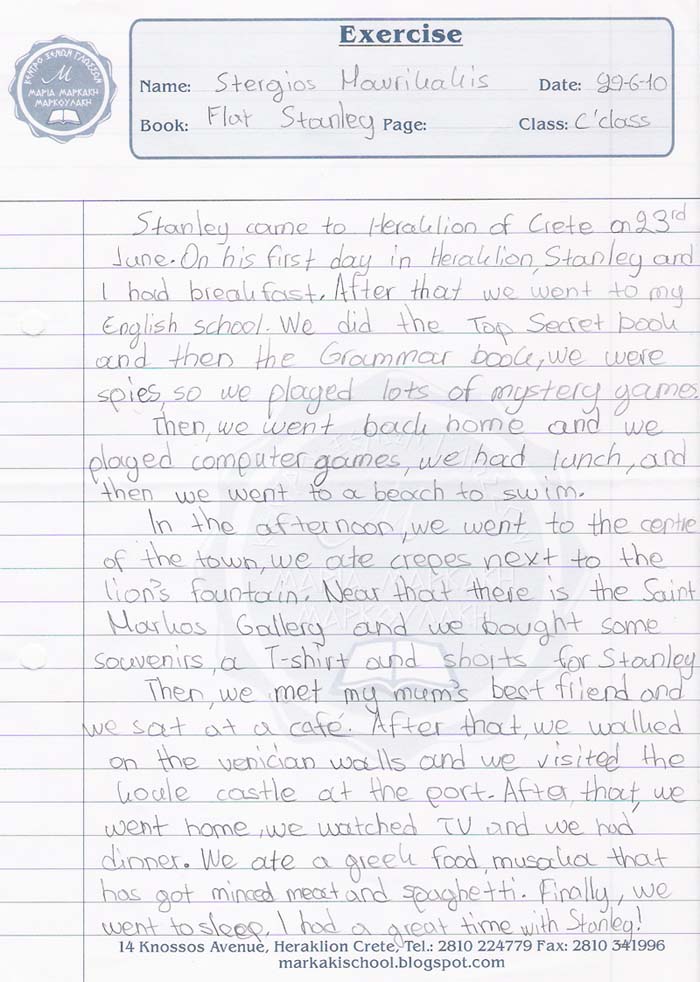 Exercise
ΚΕΝΤΡΟ ΞΕΝΩΝ ΓΛΩΣΣΩΝ
Μ
ΜΑΡΙΑ ΜΑΡΚΑΚΗ
ΜΑΡΚΟΥΛΑΚΗ
Name: Stergios Mavrikakis Date: 29-6-10
Book: Flat Stanley Page: Class: C'class
Stanley came to Heraklion of Crete on 23rd
June. On his first day in Heraklion, Stanley and
I had breakfast. After that we went to my
English school. We did the Top Secret book
and then the Grammar book, we were
spies, so we played lots of mystery games.
Then, we went back home and we
played computer games, we had lunch, and
then we went to a beach to swim.
In the afternoon, we went to the centre
of the town, we ate crepes next to the
lion's fountain. Near that there is the Saint
Markos Gallery and we bought some
souvenirs, a T-shirt and shorts for Stanley
Then, we met my mum's best friend and
we sat at a café. After that, we walked
on the venician walls and we visited the
koule castle at the port. After that, we
went home, we watched TV and we had
dinner. We ate a greek food, musaka that
has got minced meat and spaghetti. Finally, we
went to sleep. I had a great time with Stanley!
ΜΑΡΙΑ ΜΑΡΚΑΚΗ
ΜΑΡΚΟΥΛΑΚΗ
14 Knossos Avenue, Heraklion Crete, Tel.: 2810 224779 Fax: 2810 341996
markakischool.blogspot.com